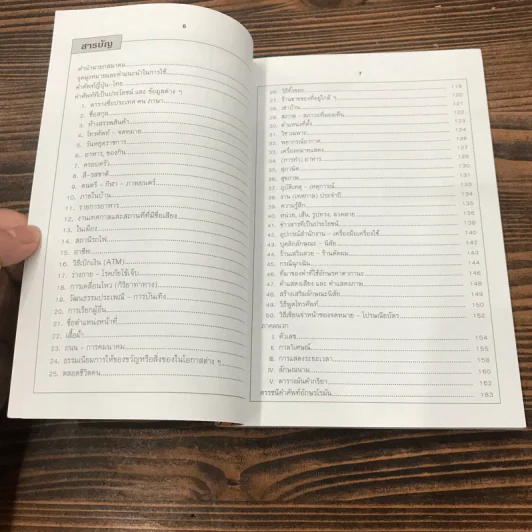 6
สารบัญ
คำนำนายกสมาคม
จุดมุ่งหมายและคำแนะนำในการใช้
คำศัพท์ญี่ปุ่น-ไทย
คำศัพท์ที่เป็นประโยชน์ และ ข้อมูลต่าง ๆ
1. ตารางชื่อประเทศ คน ภาษา
2. ชื่อสกุล
3. ห้างสรรพสินค้า
4. โทรศัพท์ - จดหมาย
5. วันหยุดราชการ
6. อาหาร, ของกิน
7. ครอบครัว
8. สี-รสชาติ
9. ดนตรี - กีฬา - ภาพยนตร์
10. ภายในบ้าน
11. รายการอาหาร
12. งานเทศกาลและสถานที่ที่มีชื่อเสียง
13. ในเมือง
14. สถานีรถไฟ
15. อาชีพ
16. วิธีเบิกเงิน (ATM)
17. ร่างกาย - โรคภัยไข้เจ็บ
18. การเคลื่อนไหว (กิริยาท่าทาง)
19. วัฒนธรรมประเพณี - การบันเทิง
20. การเรียกผู้อื่น
21. ชื่อตำแหน่งหน้าที่
22. เสื้อผ้า
23. ถนน - การคมนาคม
24. ธรรมเนียมการให้ของขวัญหรือสิ่งของในโอกาสต่าง ๆ
25. ตลอดชีวิตคน
7
26. วิธีทิ้งขยะ 119
27. ร้านขายของที่อยู่ใกล้ ๆ 120
28. เช่าบ้าน 121
29. สภาพ - สภาวะที่มองเห็น 122
30. ตำแหน่งที่ตั้ง
31. วิชาเฉพาะ
32. พยากรณ์อากาศ
33. เครื่องหมายแสดง
34. (การทำ) อาหาร
35. สุภาษิต
36. สุขภาพ
37. อุบัติเหตุ - เหตุการณ์
38. งาน (เทศกาล) ประจำปี 135
39. ความรู้สึก
40. หน่วย, เส้น, รูปทราง, ลวดลาย
41. ข่าวสารที่เป็นประโยชน์
42. อุปกรณ์สำนักงาน - เครื่องมือเครื่องใช้ 140
43. บุคลิกลักษณะ - นิสัย 142
44. ร้านเสริมสวย - ร้านตัดผม 144
45. กรณีฉุกเฉิน 144
46. ที่มาของคำที่ใช้อักษรคาตาคานะ 146
47. คำแสดงเสียง และ คำแสดงภาพ 148
48. สร้างเสริมลักษณะนิสัย 149
49. วิธีพูดโทรศัพท์ 150
50. วิธีเขียนจ่าหน้าซองจดหมาย - ไปรษณียบัตร 152
ภาคผนวก
I. ตัวเลข 154
II. กาลวิเศษณ์ 155
III. การแสดงระยะเวลา 158
IV. ลักษณนาม 160
V. ตารางผันคำกริยา 162
ดรรชนีคำศัพท์อักษรโรมัน 163